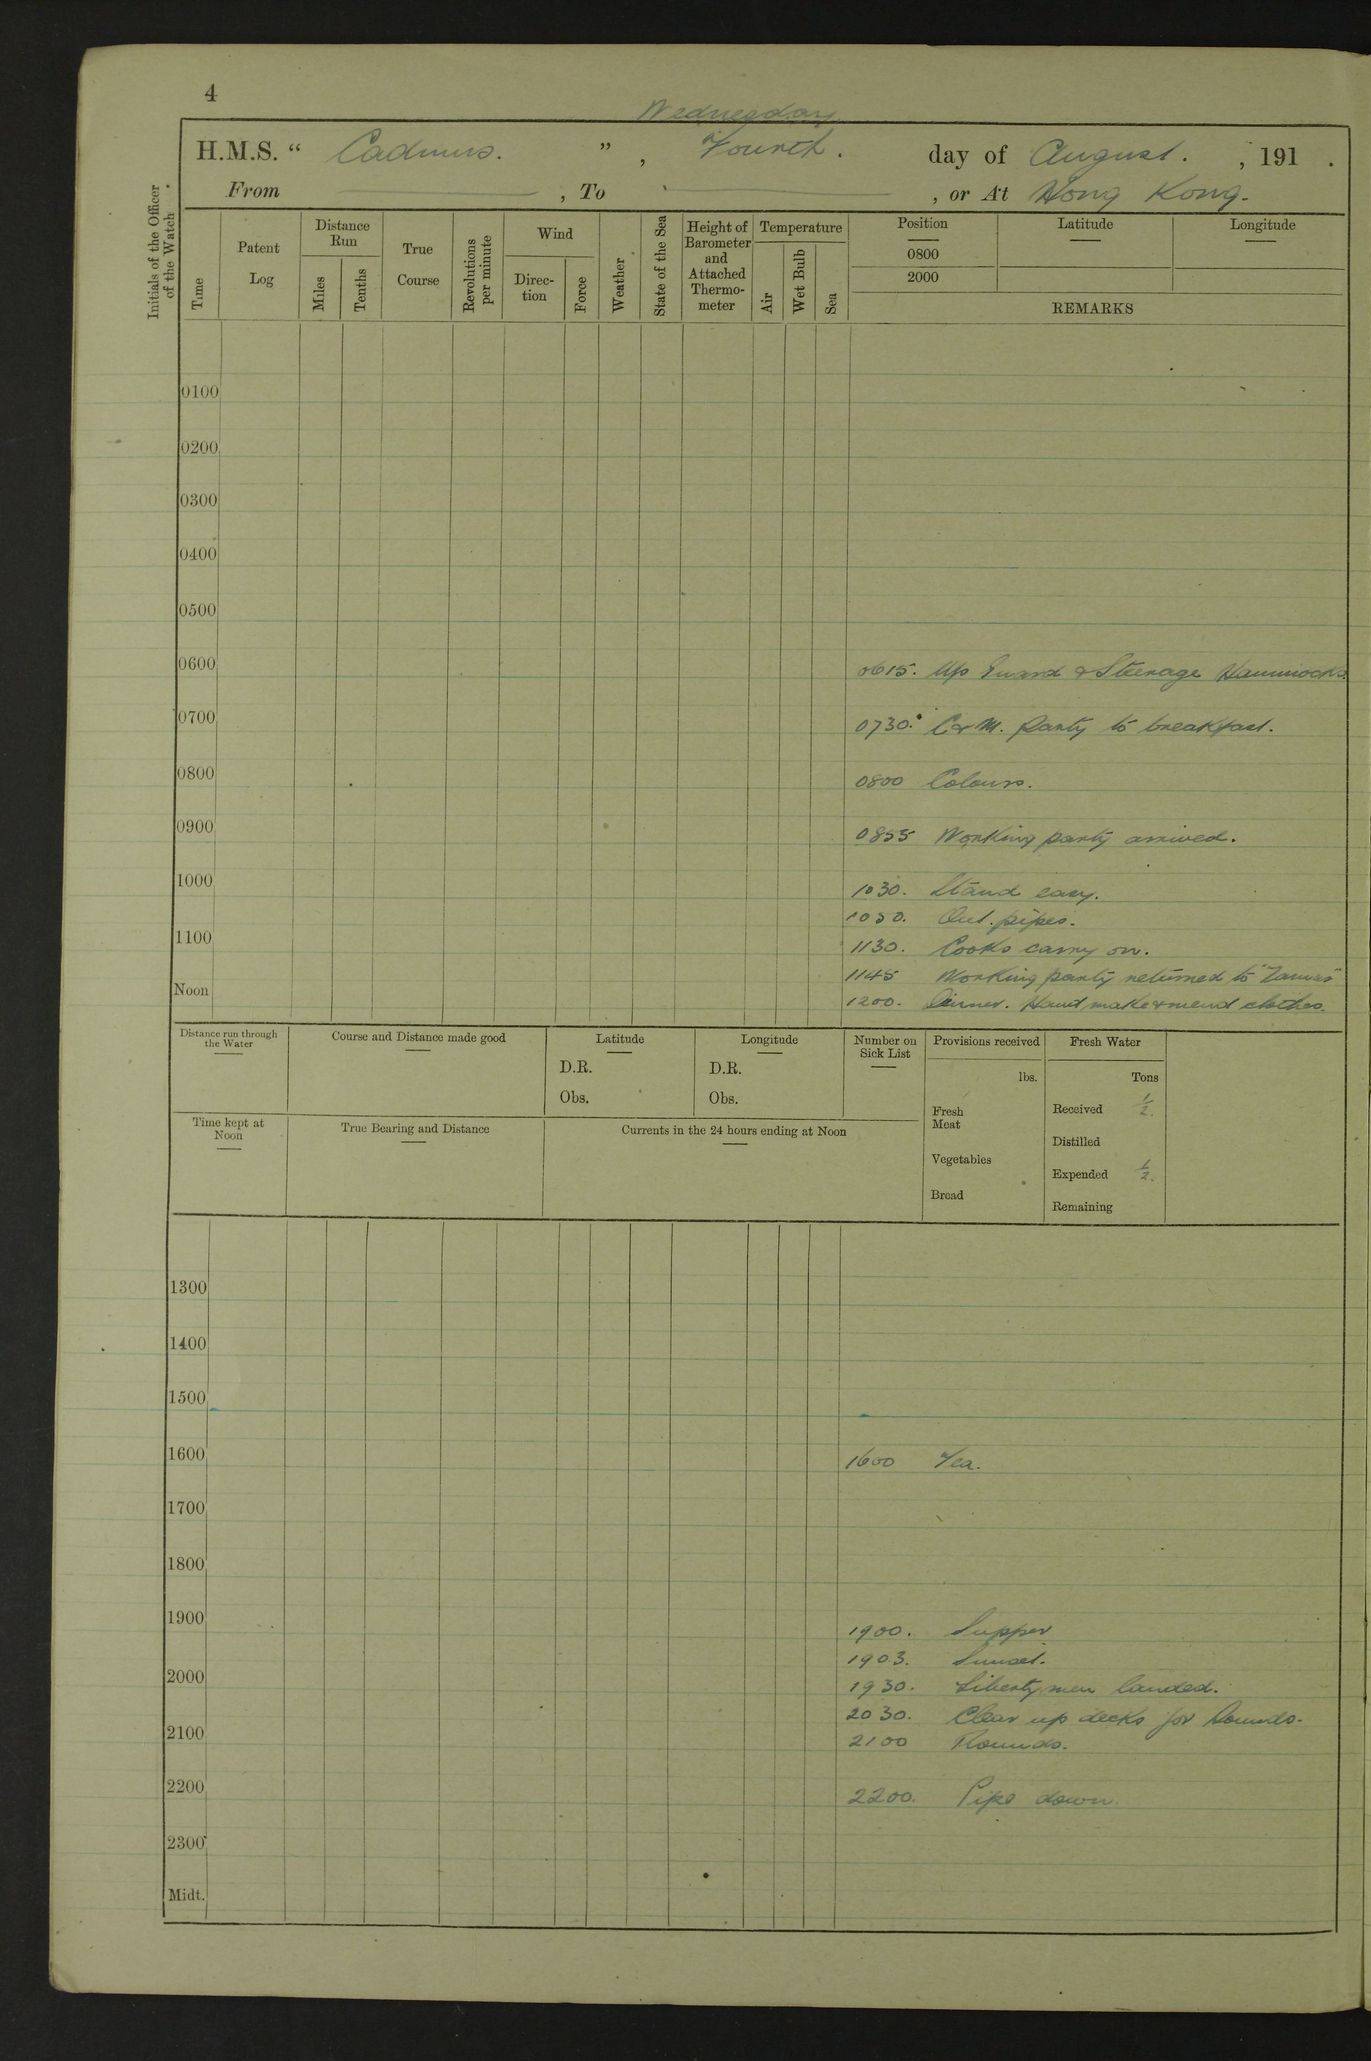 4
Wednesday
H.M.S. “ Cadmus. ” , Fourth. day of August. , 191 .
From , To , or At Hong Kong.
Initials of the Officer of the Watch.
Time
Patent Log
Distance Run
Miles
Tenths
True Course
Revolutions per minute
Wind
Direction
Force
Weather
State of the Sea
Height of Barometer and Attached Thermometer
Temperature
Air
Wet Bulb
Sea
Position
0800
2000
Latitude
Longitude
REMARKS
0100
0200
0300
0400
0500
0600
0615. Up Guard & Steerage Hammocks.
0700
0730. C & M. Party to breakfast.
0800
0800 Colours.
0900
0855 Working party arrived.
1000
1030. Stand easy.
1050. Out pipes.
1100
1130. Cooks carry on.
1145 Working party returned to "Tamar"
Noon
1200. Dinner. Hand make & mend clothes.
Distance run through the Water
Course and Distance made good
Latitude
D.R.
Obs.
Longitude
D.R.
Obs.
Number on Sick List
Provisions received
lbs.
Fresh Meat
Vegetables
Bread
Fresh Water
Tons
Received 1/2.
Distilled
Expended 1/2.
Remaining
Time kept at Noon
True Bearing and Distance
Currents in the 24 hours ending at Noon
1300
1400
1500
1600
1600 Tea.
1700
1800
1900
1900. Supper
1903. Sunset.
2000
1930. Liberty men landed.
2030. Clear up decks for Rounds.
2100
2100 Rounds.
2200
2200. Pipe down.
2300
Midt.